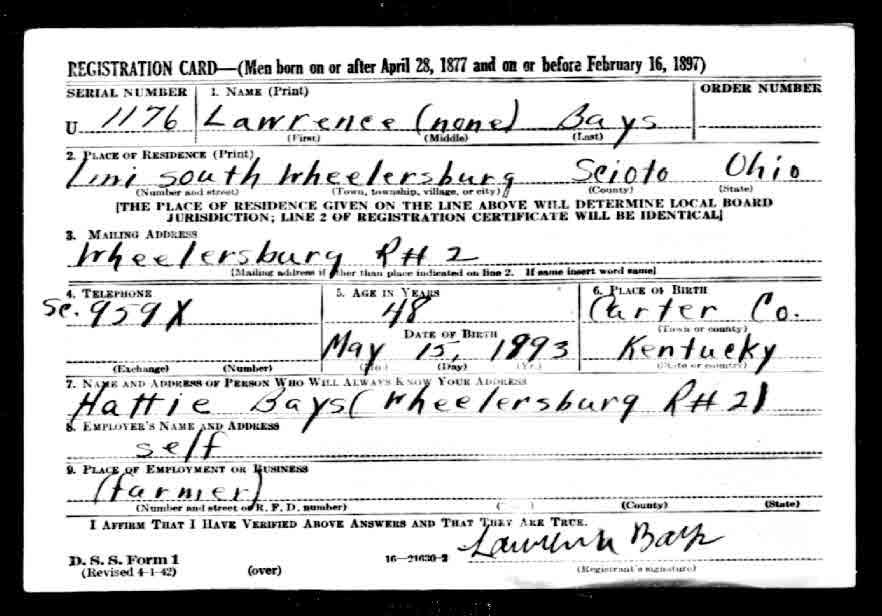 REGISTRATION CARD—(Men born on or after April 28, 1877 and on or before February 16, 1897)
SERIAL NUMBER 1. NAME (Print) ORDER NUMBER
U 1176 Lawrence (none) Bays
(First) (Middle) (Last)
2. PLACE OF RESIDENCE (Print)
south Wheelersburg Scioto Ohio
(Number and street) (Town, township, village, or city) (County) (State)
[THE PLACE OF RESIDENCE GIVEN ON THE LINE ABOVE WILL DETERMINE LOCAL BOARD
JURISDICTION; LINE 2 OF REGISTRATION CERTIFICATE WILL BE IDENTICAL]
3. MAILING ADDRESS
Wheelersburg R#2
[Mailing address if other than place indicated on line 2. If same insert word same]
4. TELEPHONE 5. AGE IN YEARS 6. PLACE OF BIRTH
Sc. 959X 48 Carter Co.
DATE OF BIRTH (Town or county)
May 15, 1893 Kentucky
(Exchange) (Number) (Mo.) (Day) (Yr.) (State or country)
7. NAME AND ADDRESS OF PERSON WHO WILL ALWAYS KNOW YOUR ADDRESS
Hattie Bays (Wheelersburg R#2)
8. EMPLOYER'S NAME AND ADDRESS
self
9. PLACE OF EMPLOYMENT OR BUSINESS
(farmer)
(Number and street or R. F. D. number) (County) (State)
I AFFIRM THAT I HAVE VERIFIED ABOVE ANSWERS AND THAT THEY ARE TRUE.
Lawrence Bays
D. S. S. Form 1
(Revised 4-1-42) (over) 16—21630-2 (Registrant's signature)